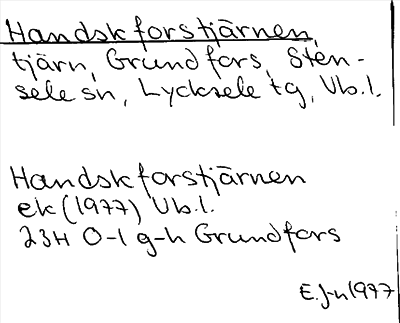 Handskforstjärnen,
tjärn, Grundfors, Sten-
sele sn, Lycksele tg, Vb.l.
Handskforstjärnen
ek (1977) Vb.l.
23H 0-1 g-h Grundfors
E. J-n 1977